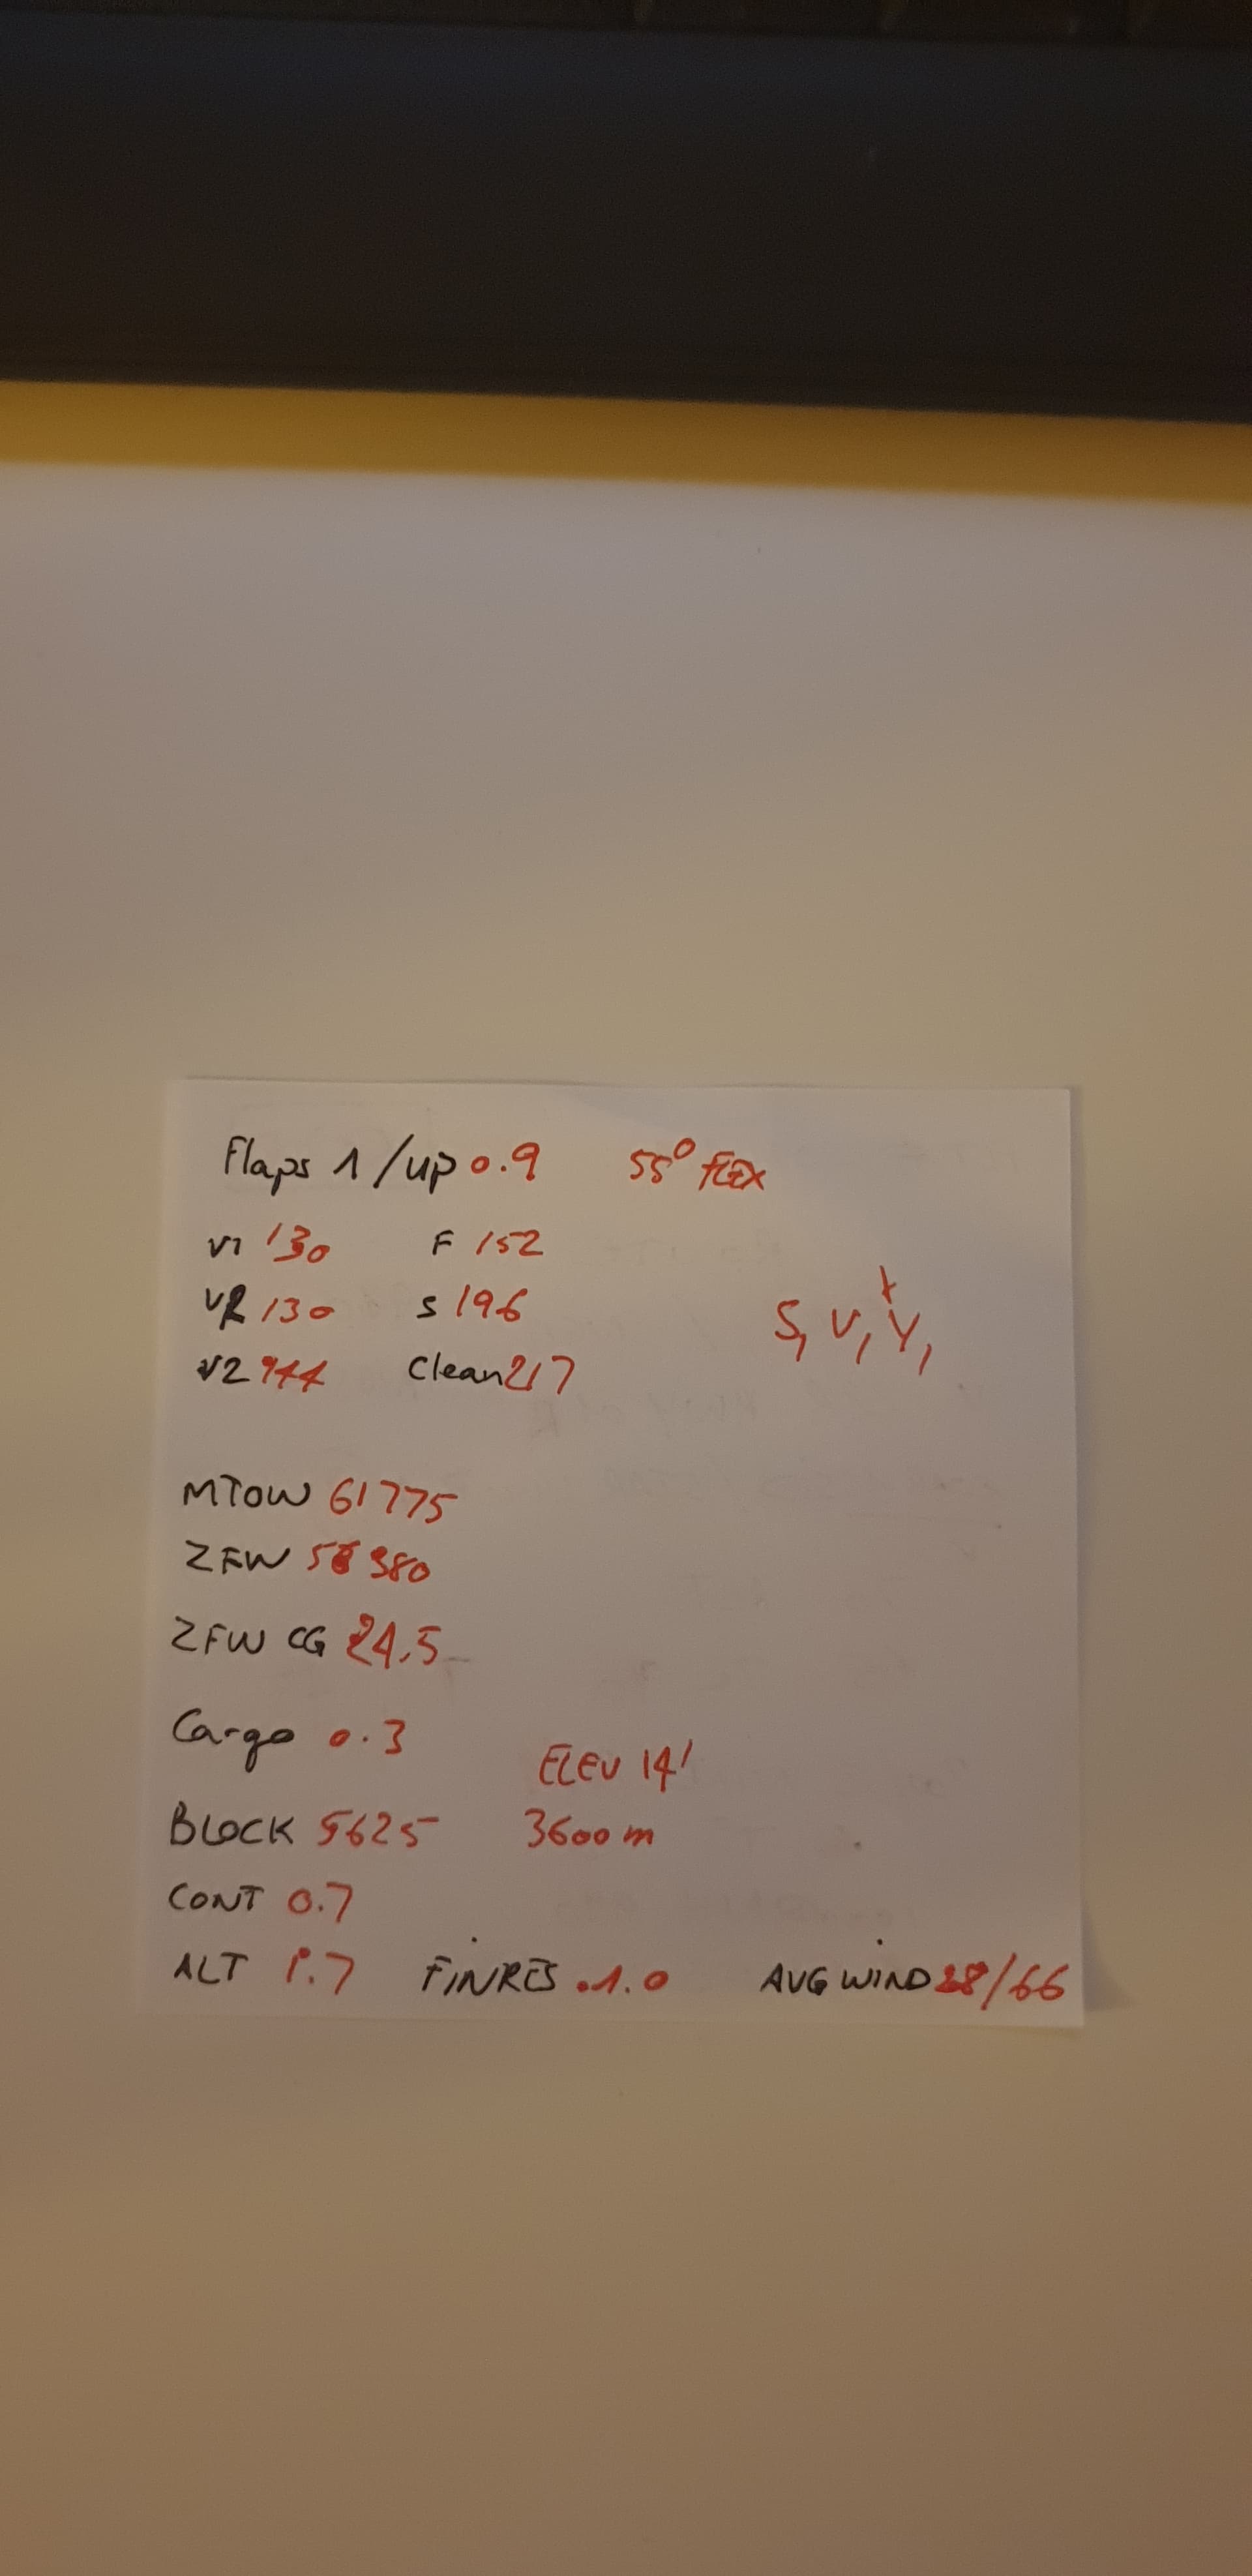 Flaps 1/up 0.9 55° FLEX
V1 130 F 152
VR 130 S 196
S, V, Y,
V2 144 Clean 217
MTOW 61775
ZFW 56380
ZFW CG 24.5
Cargo 0.3
ELEV 14'
BLOCK 5625 3600 m
CONT 0.7
ALT 1.7 FINRES 1.0 AVG WIND /66